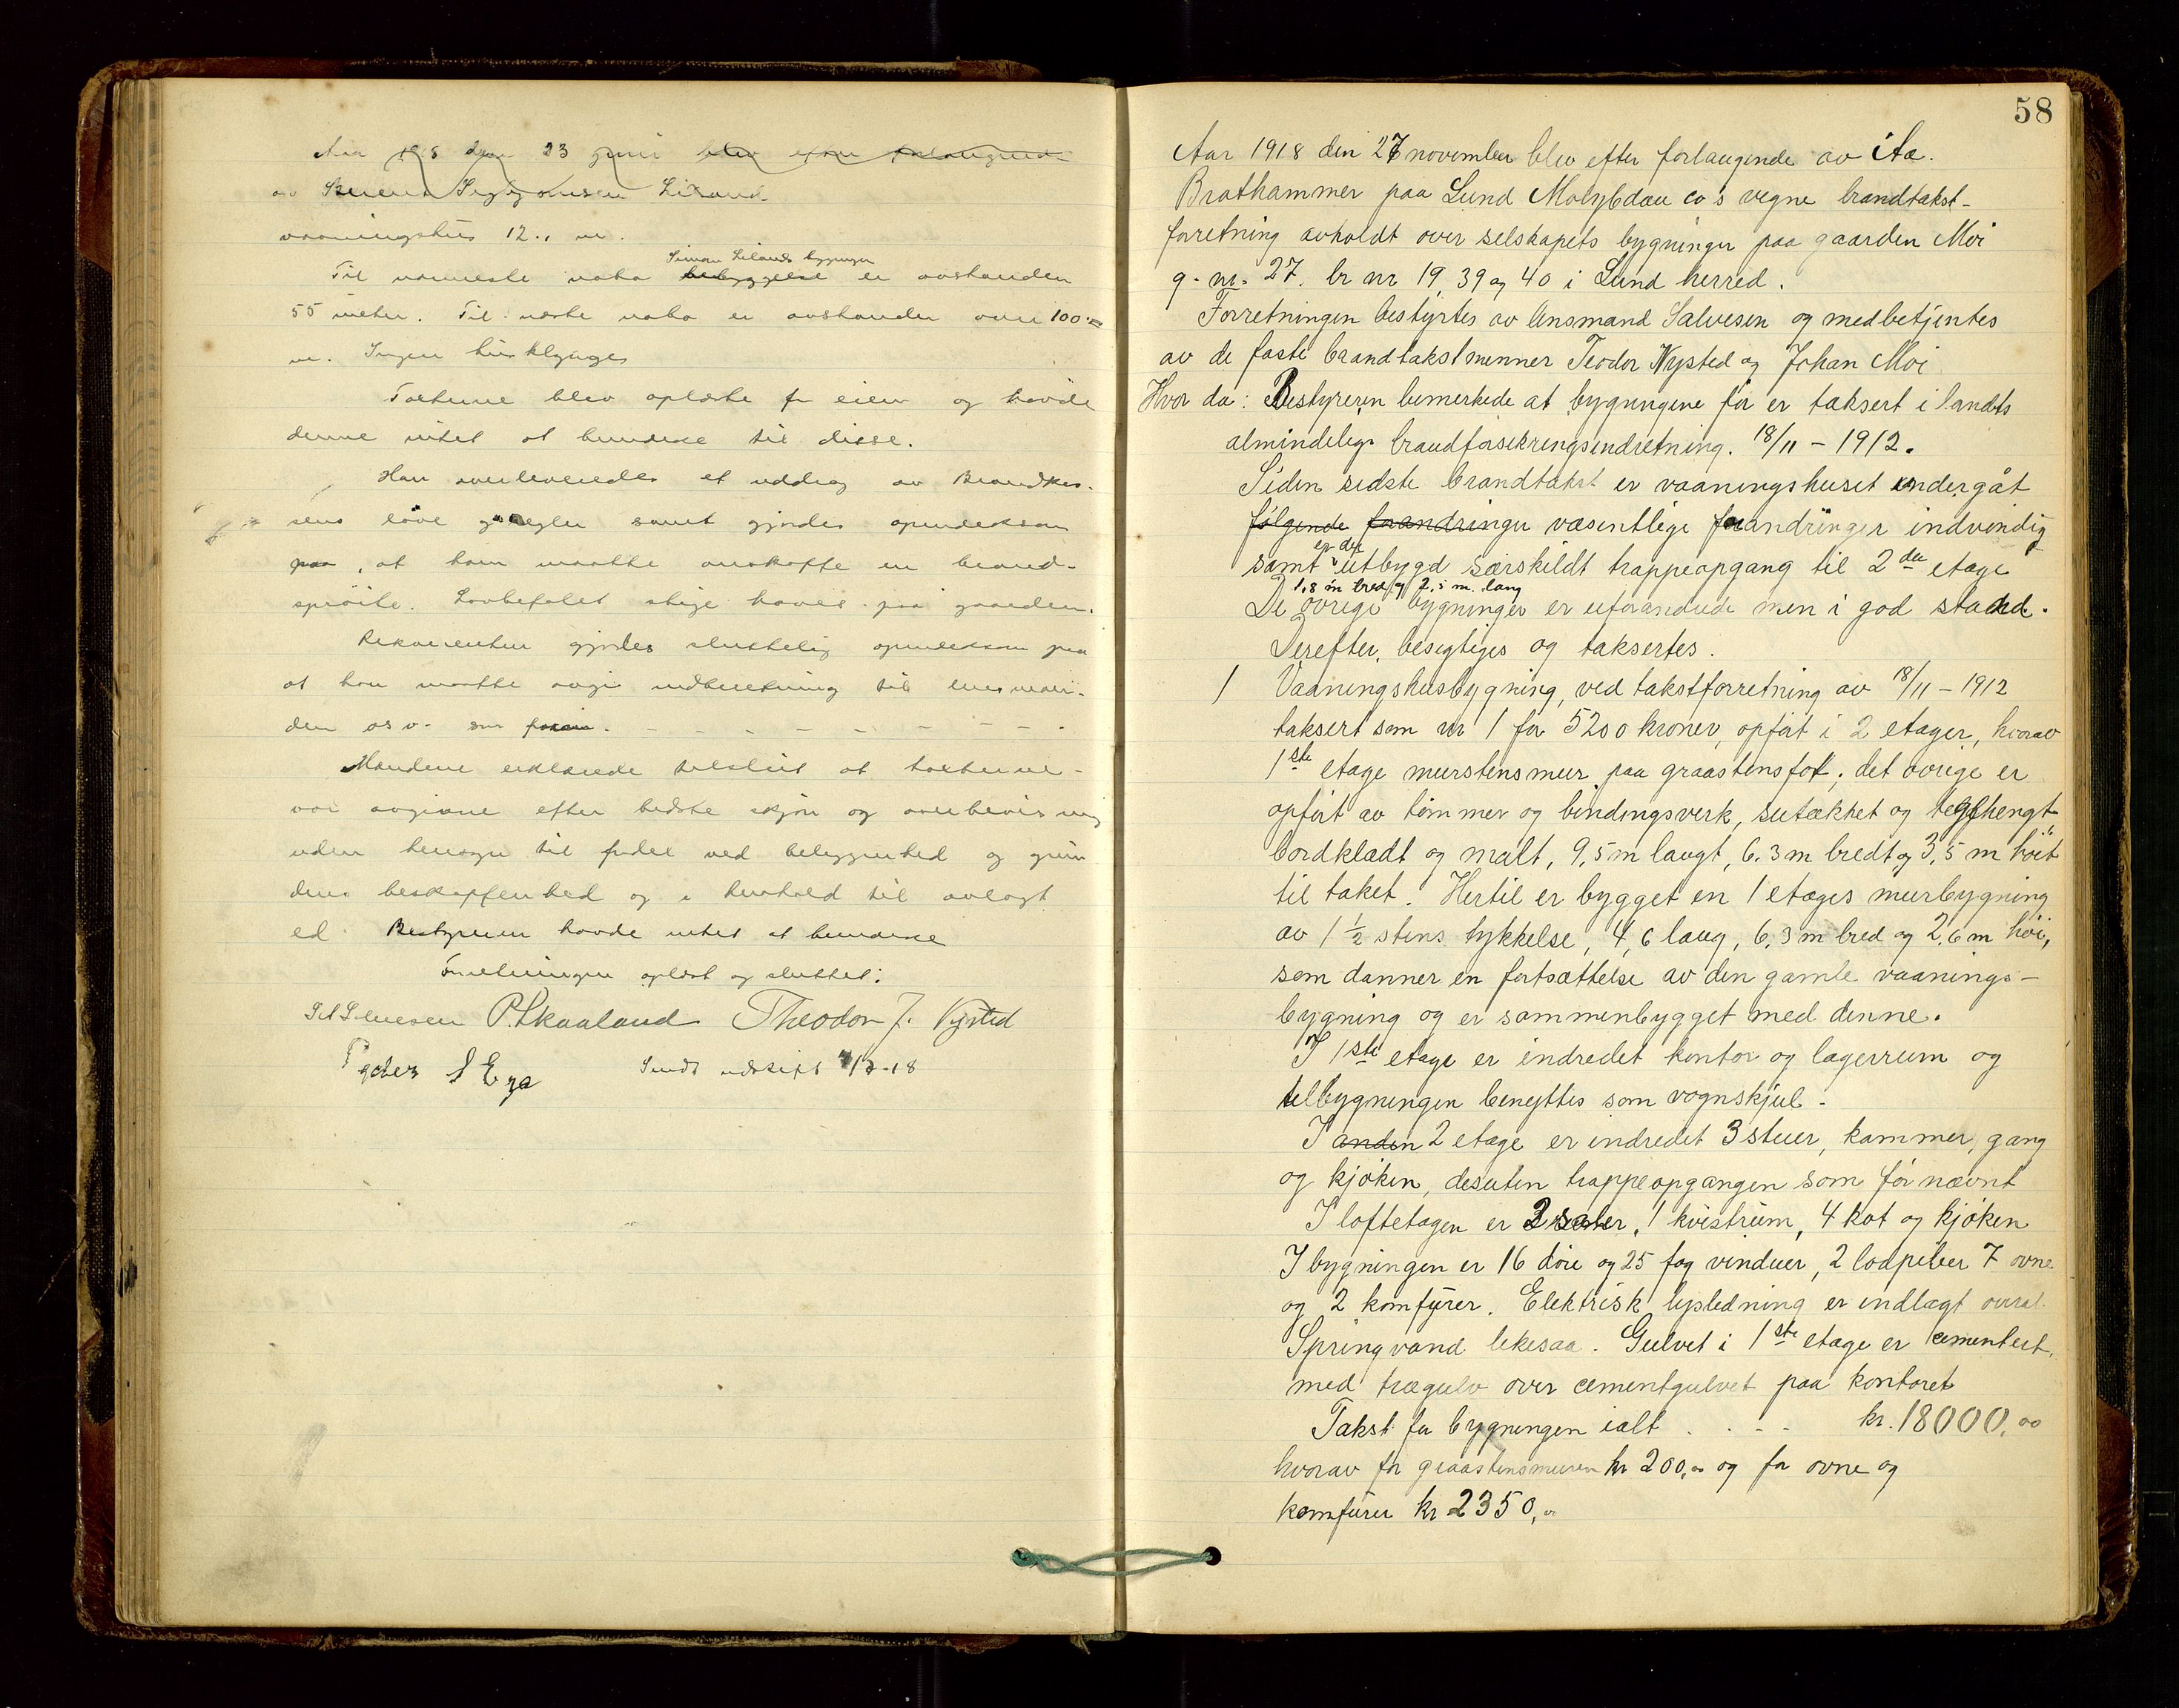 Aar 1918 den 23 juni blev efter forlangende
av Sigbjørnsen Liland
vaaningshus 12.1 m.
Simon Lilands bygninger
Til nærmeste nabo bebyggelse er avstanden
55 meter. Til næste nabo er avstanden over 100
m. Ingen husklynge
Taksterne blev oplæste for eieren og havde
denne intet at bemerke til disse.
Han overleveredes et uddrag av Brandkas-
sens love og regler samt gjordes opmerksom
paa, at han maatte anskaffe en brand-
sprøite. Lovbefalet stige haves paa gaarden.
Rekvirenten gjordes sluttelig opmerksom paa
at han maatte avgi indberetning til lensman-
den osv. som foran. - - - - - - - -
Mændene erklærede tilslut at taksterne
var avgivne efter bedste skjøn og overbevisning
uden hensyn til fordel ved beliggenhed og grun
dens beskaffenhed og i henhold til avlagt
ed. Bestyreren havde intet at bemerke
Forretningen oplæst og sluttet:
Salvesen P. Skaaland Theodor J. Nysted
Peder S Ege Sendt utskrift -18
58
Aar 1918 den 27 november blev efter forlangende av
Brathammer paa Lund Molybdæn co's vegne brandtakst-
forretning avholdt over selskapets bygninger paa gaarden Moi
g. nr. 27. br nr 19, 39 og 40 i Lund herred.
Forretningen bestyrtes av lensmand Salvesen og medbetjentes
av de faste brandtakstmænner Teodor Nysted og Johan Moi
Hvor da: Bestyreren bemerkede at bygningene før er taksert i landets
almindelige brandforsikringsindretning. 18/11 - 1912.
Siden sidste brandtakst er vaaningshuset undergåt
følgende forandringer væsentlige forandringer indvendig
er det
samt utbygd særskildt trappeopgang til 2den etage
1,8 m bred og 2,5 m. lang
De øvrige bygninger er uforandrede men i god stand.
Derefter besigtiges og taksertes.
1 Vaaningshusbygning, ved takstforretning av 18/11 - 1912
taksert som nr 1 for 5200 kroner, opført i 2 etager, hvorav
1ste etage murstensmur paa graastensfot, det øvrige er
opført av tømmer og bindingsverk, sutækket og teglhengt
bordklædt og malt, 9,5 m langt, 6,3 m bredt og 3,5 m høit
til taket. Hertil er bygget en 1 etages murbygning
av 1 1/2 stens tykkelse, 4,6 lang, 6,3 m bred og 2,6 m høi,
som danner en fortsættelse av den gamle vaanings-
bygning og er sammenbygget med denne.
I 1ste etage er indredet kontor og lagerrum og
tilbygningen benyttes som vognskjul.
I anden 2 etage er indredet 3 stuer, kammer, gang
og kjøken, desuten trappeopgangen som før nævnt
I loftetagen er 2 saler, 1 kvistrum, 4 kot og kjøken
I bygningen er 16 døre og 25 fag vinduer, 2 lodpiber 7 ovne
og 2 komfyrer. Elektrisk lysledning er indlagt overal.
Springvand likesaa. Gulvet i 1ste etage er cementert,
med trægulv over cementgulvet paa kontoret
Takst for bygningen ialt . . - - kr. 18000,00
hvorav for graastensmuren kr 200,00 og for ovne og
komfürer kr 2350,00